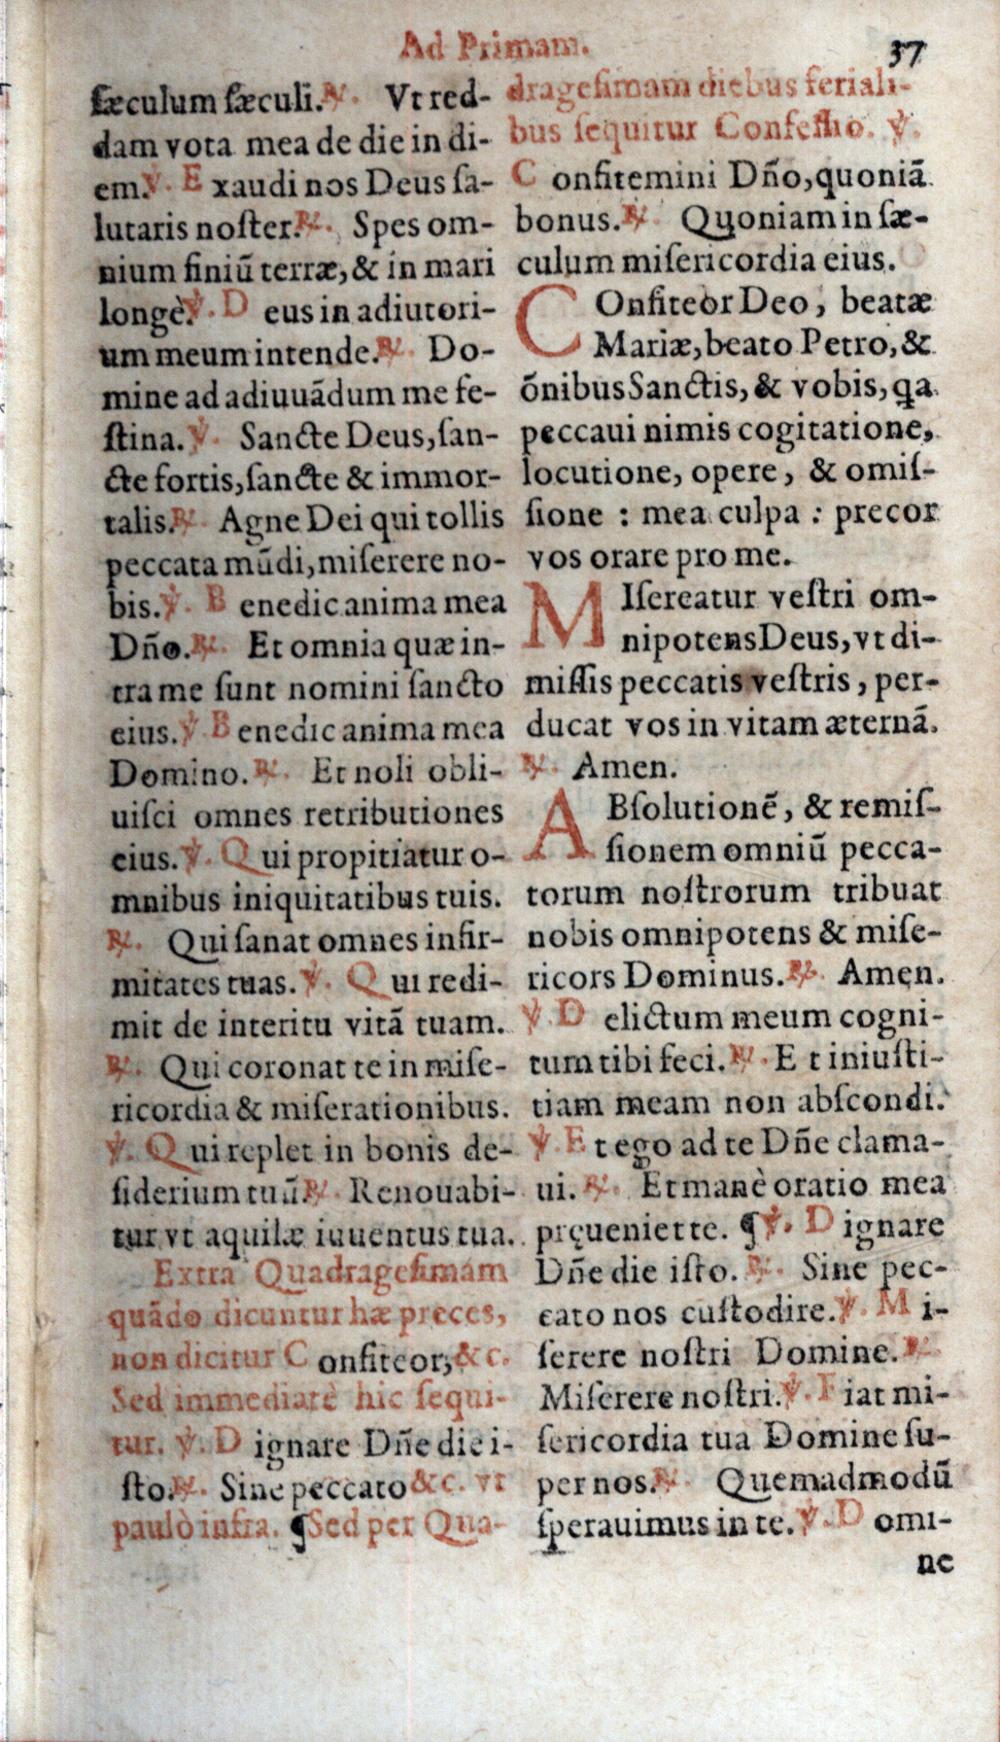 Ad Primam.
37
sæculum sæculi. ℟. Vt red-
dam vota mea de die in di-
em. ℣. Exaudi nos Deus ſa-
lutaris noſter. ℟. Spes om-
nium finiũ terræ, & in mari
longè. ℣. Deus in adiutori-
um meum intende. ℟. Do-
mine ad adiuuãdum me fe-
ſtina. ℣. Sancte Deus, ſan-
cte fortis, ſancte & immor-
talis. ℟. Agne Dei qui tollis
peccata mũdi, miſerere no-
bis. ℣. Benedic anima mea
Dño. ℟. Et omnia quæ in-
tra me ſunt nomini ſancto
eius. ℣. Benedic anima mea
Domino. ℟. Et noli obli-
uiſci omnes retributiones
eius. ℣. Qui propitiatur o-
mnibus iniquitatibus tuis.
℟. Qui ſanat omnes infir-
mitates tuas. ℣. Qui redi-
mit de interitu vitã tuam.
℟. Qui coronat te in miſe-
ricordia & miſerationibus.
℣. Qui replet in bonis de-
ſiderium tuũ. ℟. Renouabi-
tur vt aquilæ iuuentus tua.
Extra Quadrageſimam
quãdo dicuntur hæ preces,
non dicitur Confiteor, &c.
Sed immediatè hic ſequi-
tur. ℣. Dignare Dñe die i-
ſto. ℟. Sine peccato &c. vt
paulò infra. ¶ Sed per Qua-
drageſimam diebus feriali-
bus ſequitur Confeſſio. ℣.
Confitemini Dño, quoniã
bonus. ℟. Quoniam in ſæ-
culum miſericordia eius.
COnfiteor Deo, beatæ
Mariæ, beato Petro, &
õnibus Sanctis, & vobis, qa
peccaui nimis cogitatione,
locutione, opere, & omiſ-
ſione : mea culpa : precor
vos orare pro me.
MIſereatur veſtri om-
nipotens Deus, vt di-
miſſis peccatis veſtris, per-
ducat vos in vitam æternã.
℟. Amen.
ABſolutionẽ, & remiſ-
ſionem omniũ pecca-
torum noſtrorum tribuat
nobis omnipotens & miſe-
ricors Dominus. ℟. Amen.
℣. Delictum meum cogni-
tum tibi feci. ℟. Et iniuſti-
tiam meam non abſcondi.
℣. Et ego ad te Dñe clama-
ui. ℟. Et manè oratio mea
pręueniet te. ¶ ℣. Dignare
Dñe die iſto. ℟. Sine pec-
cato nos cuſtodire. ℣. Mi-
ſerere noſtri Domine. ℟.
Miſerere noſtri. ℣. Fiat mi-
ſericordia tua Domine ſu-
per nos. ℟. Quemadmodũ
ſperauimus in te. ℣. Domi-
ne